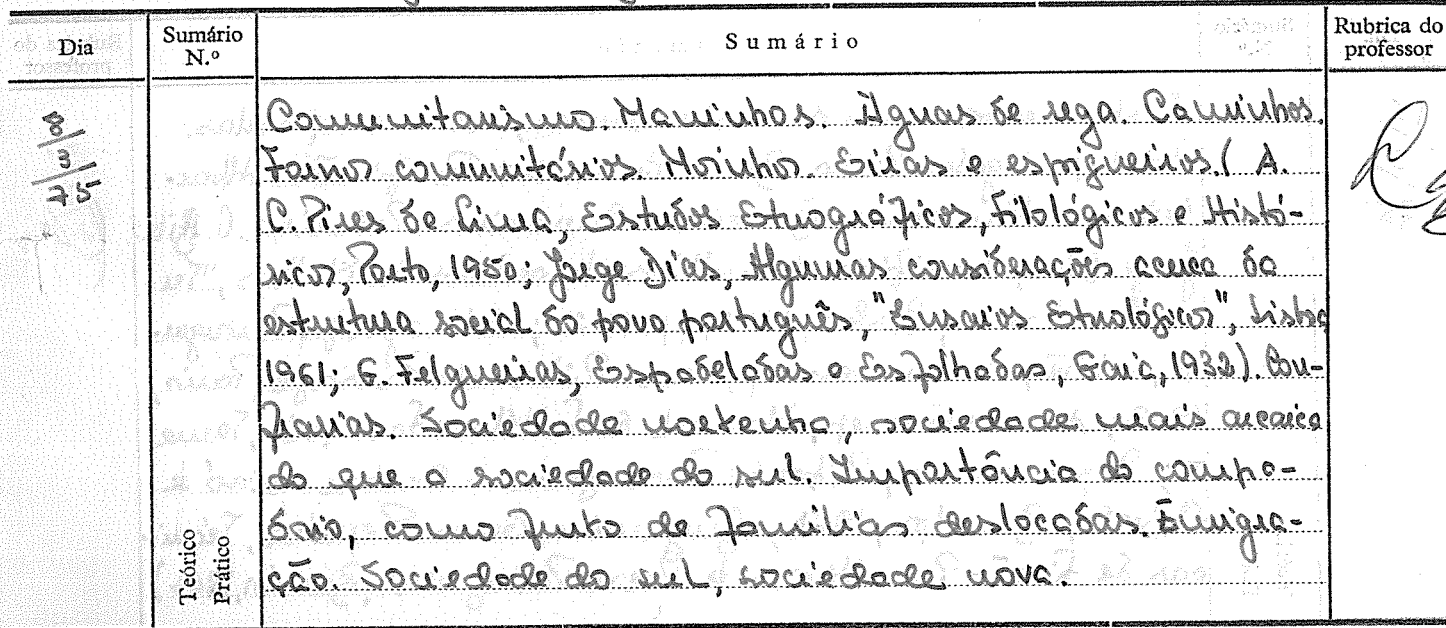 Dia
Sumário N.º
Sumário
Rubrica do professor
8/3/75
Teórico
Prático
Comunitarismo. Maninhos. Águas de rega. Caminhos.
Fornos comunitários. Moinhos. Eiras e espigueiros. (A.
C. Pires de Lima, Estudos Etnográficos, Filológicos e Histó-
ricos, Porto, 1950; Jorge Dias, Algumas considerações acerca da
estrutura social do povo português, "Ensaios Etnológicos", Lisboa
1961; G. Felgueiras, Espadeladas e Esfolhadas, Gaia, 1932). Con-
frarias. Sociedade nortenha, sociedade mais arcaica
do que a sociedade do sul. Importância do compa-
drio, como fruto de famílias deslocadas. Emigra-
ção. Sociedade do sul, sociedade nova.